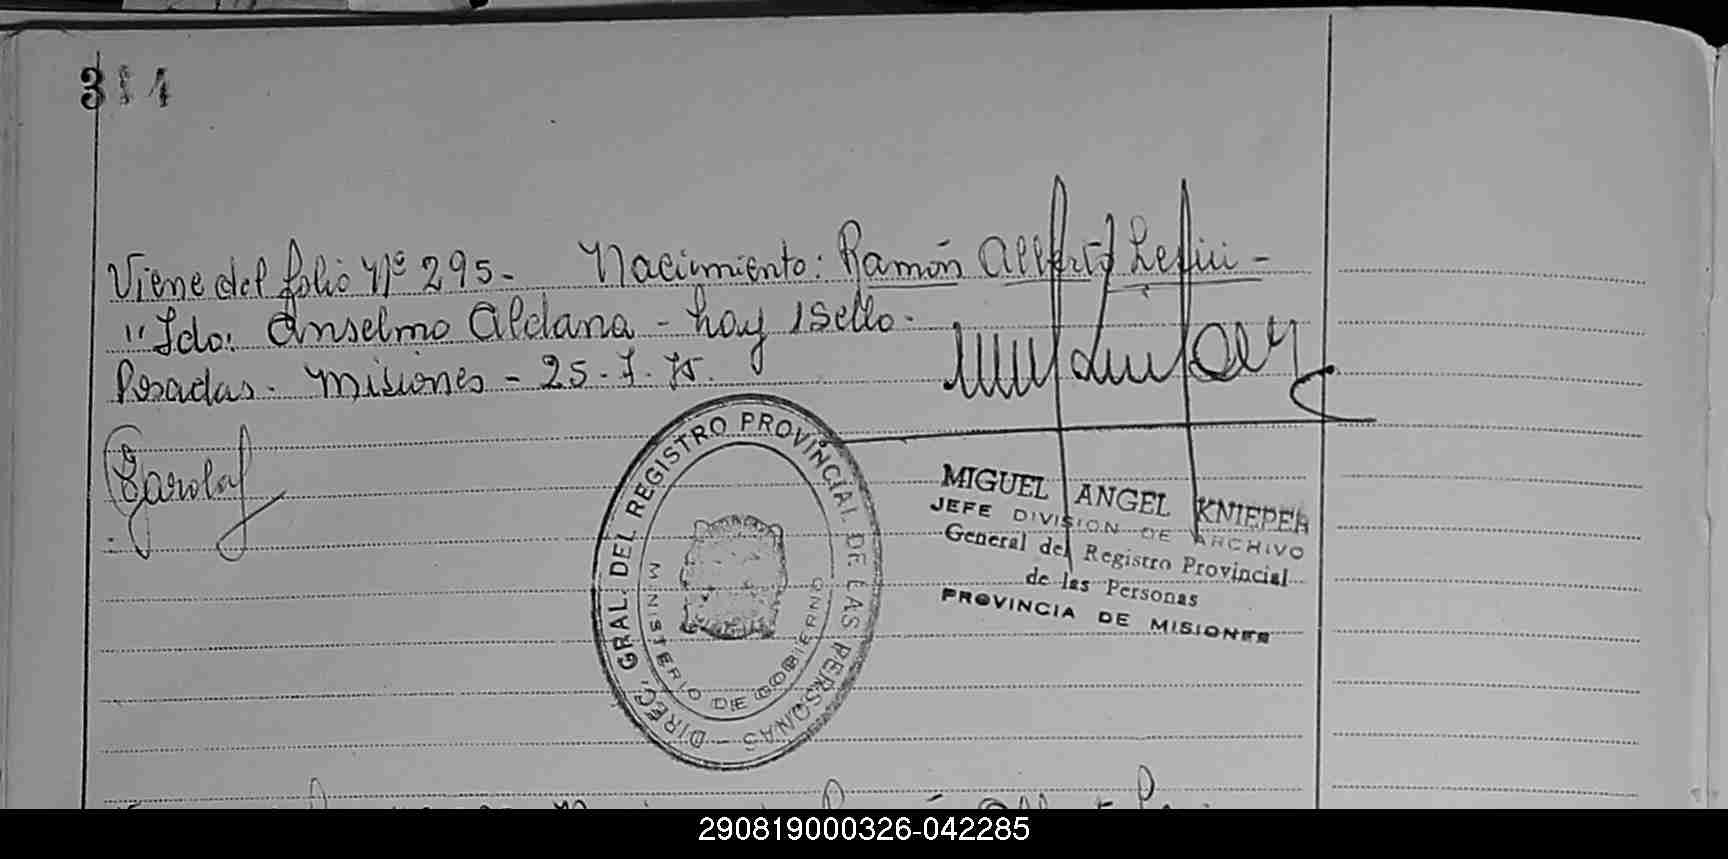 3 4
Viene del folio Nº 295 - Nacimiento: Ramón Alberto
"Fdo: Anselmo Aldana - hay 1 Sello.
Posadas. Misiones - 25-7-75.
DIREC. GRAL. DEL REGISTRO PROVINCIAL DE LAS PERSONAS
MINISTERIO DE GOBIERNO
MIGUEL ANGEL KNIEPER
JEFE DIVISION DE ARCHIVO
General del Registro Provincial
de las Personas
PROVINCIA DE MISIONES
290819000326-042285